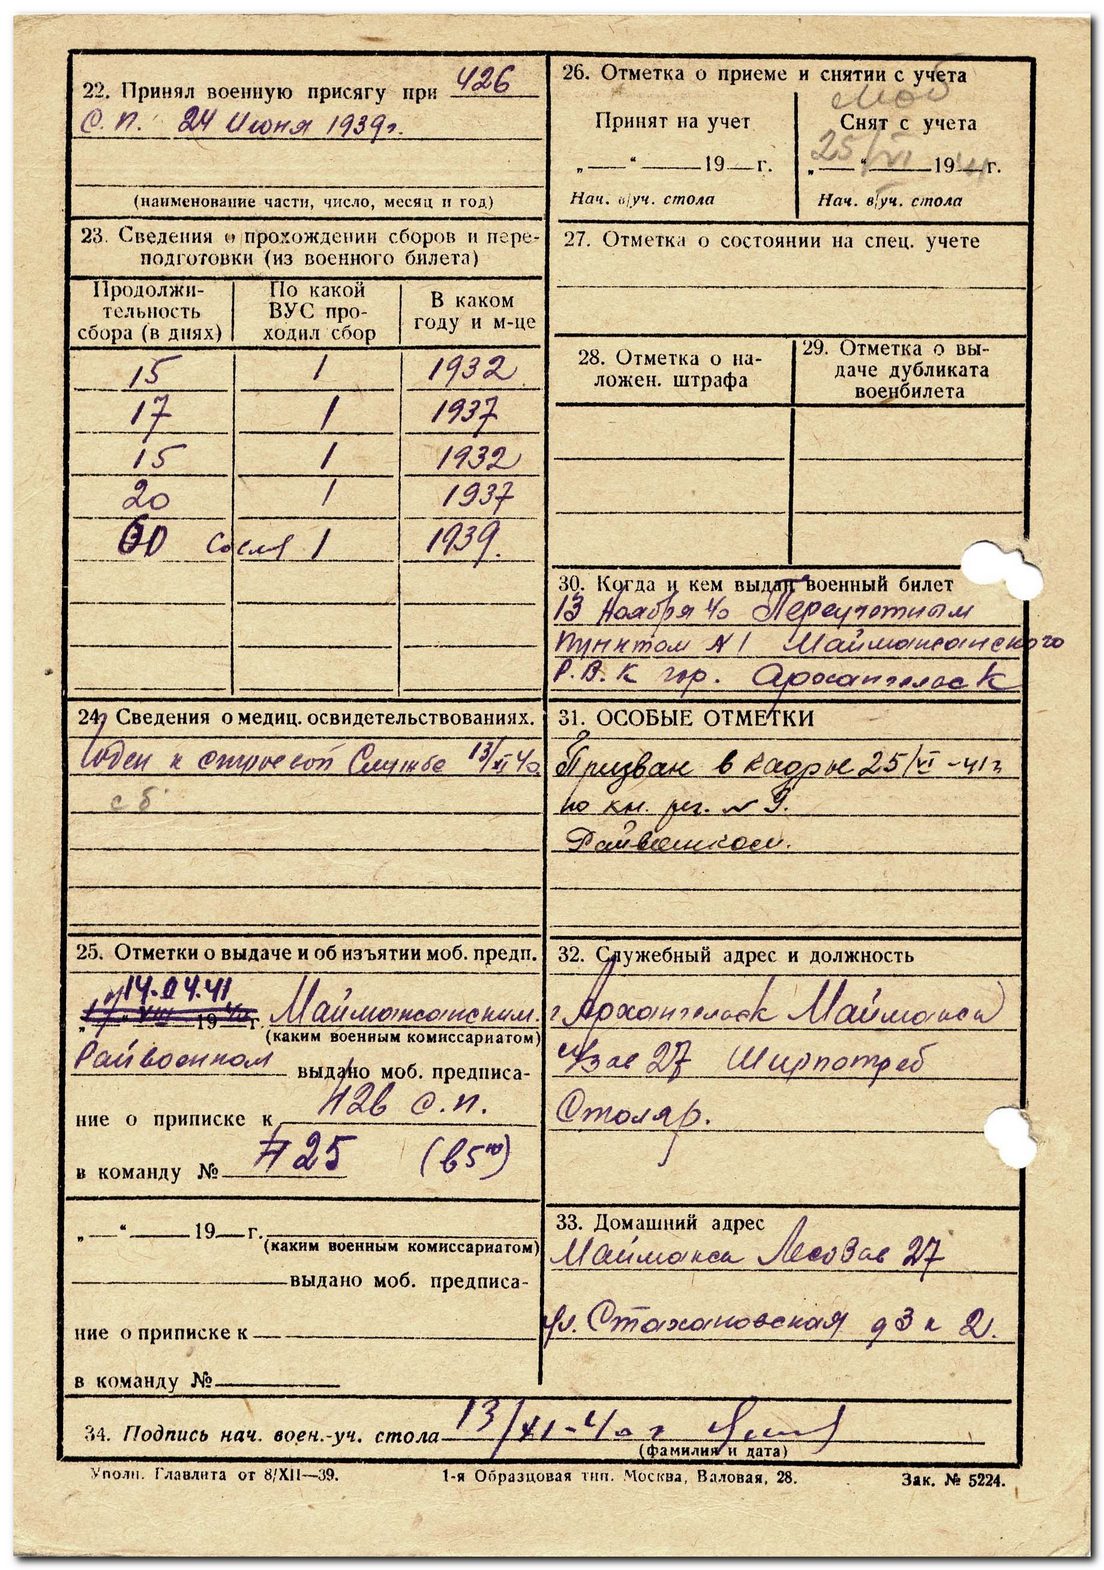 22. Принял военную присягу при 426
С. п. 24 Июня 1939 г.
(наименование части, число, месяц и год)
23. Сведения о прохождении сборов и пере-
подготовки (из военного билета)
Продолжи-
тельность
сбора (в днях)
По какой
ВУС про-
ходил сбор
В каком
году и м-це
15 1 1932
17 1 1937
15 1 1932
20 1 1937
60 1 1939.
24. Сведения о медиц. освидетельствованиях.
Годен к строевой Службе 13/XI 40
сб
25. Отметки о выдаче и об изъятии моб. предп.
14.04.41
„17“ VIII 1940 г. Маймаксанским
(каким военным комиссариатом)
Райвоенком выдано моб. предписа-
ние о приписке к с.п.
в команду № 25
„—“ 19—г.
(каким военным комиссариатом)
выдано моб. предписа-
ние о приписке к
в команду №
26. Отметка о приеме и снятии с учета
Принят на учет
„—“ 19—г.
Нач. в/уч. стола
Моб
Снят с учета
„25“ VI 1941 г.
Нач. в/уч. стола
27. Отметка о состоянии на спец. учете
28. Отметка о на-
ложен. штрафа
29. Отметка о вы-
даче дубликата
военбилета
30. Когда и кем выдан военный билет
13 Ноября 40 Переучетным
пунктом №1 Маймаксанского
Р.В.К гор. Архангельск
31. ОСОБЫЕ ОТМЕТКИ
Призван в кадры 25/VI-41 г
по кн. рег. № 9.
Райвоенком.
32. Служебный адрес и должность
г. Архангельск Маймакса
л/зав 27 Ширпотреб
Столяр.
33. Домашний адрес
Маймакса Лесозав 27
ул. Стахановская д 3 к 2.
34. Подпись нач. воен.-уч. стола 13/XI-40 г
(фамилия и дата)
Уполн. Главлита от 8/XII—39.
1-я Образцовая тип. Москва, Валовая, 28.
Зак. № 5224.